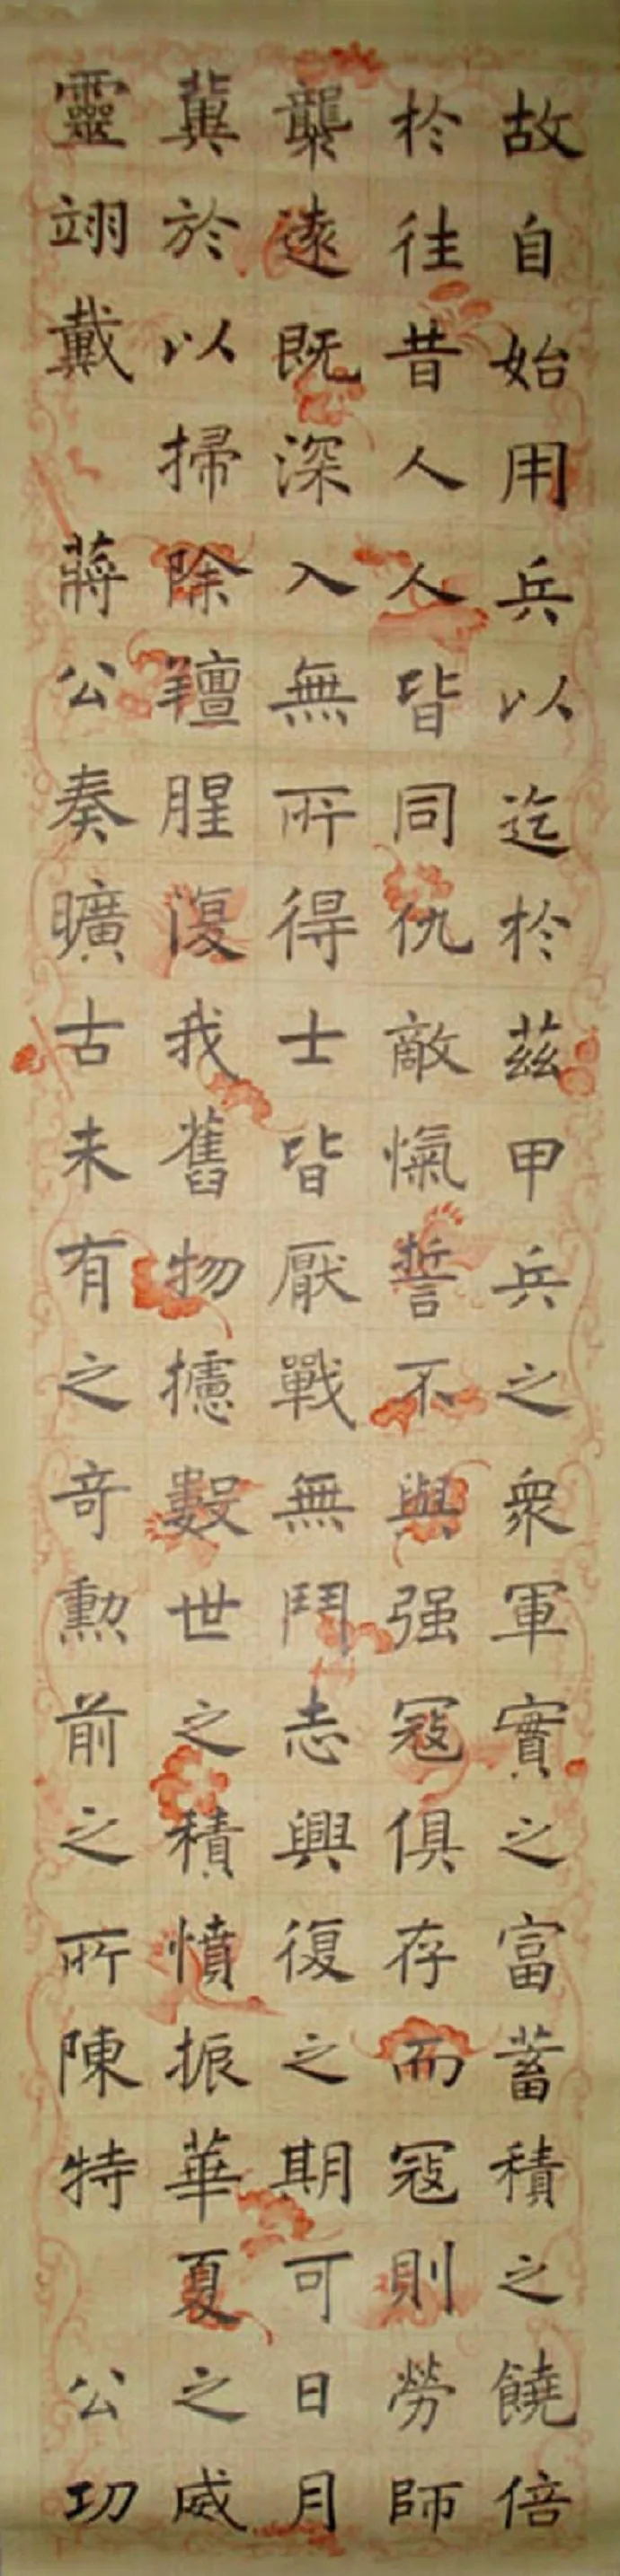 故自始用兵以迄於茲甲兵之衆軍實之富蓄積之饒倍
於往昔人人皆同仇敵愾誓不與强寇俱存而寇則勞師
襲遠既深入無所得士皆厭戰無鬥志興復之期可日月
冀於以掃除羶腥復我舊物攄數世之積憤振華夏之威
靈翊戴 蔣公奏曠古未有之奇勳前之所陳特 公功